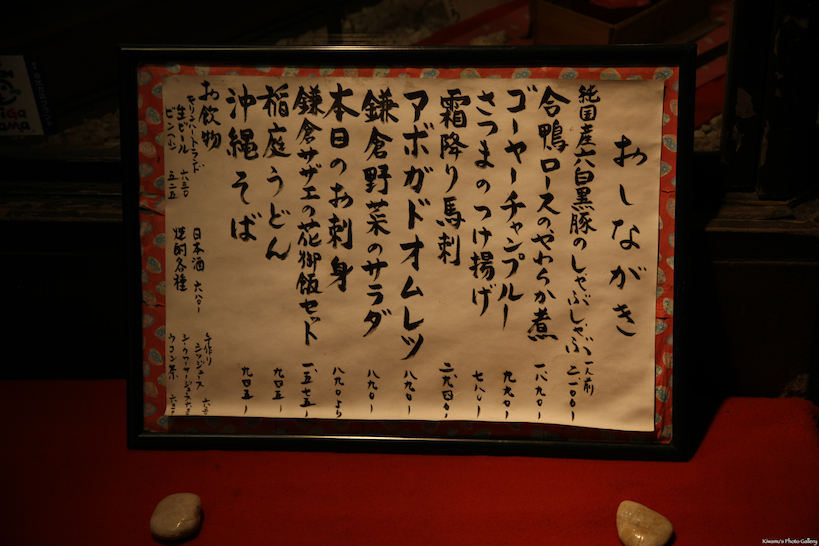 おしながき
純国産六白黒豚のしゃぶしゃぶ 一人前 二一〇〇ー
合鴨ロースのやわらか煮 一、八九〇ー
ゴーヤーチャンプルー 九九〇ー
さつまのつけ揚げ 七八〇ー
霜降り馬刺 二、九四〇ー
アボガドオムレツ 八九〇ー
鎌倉野菜のサラダ 八九〇ー
本日のお刺身 八九〇より
鎌倉サザエの花御飯セット 一、五七五ー
稲庭うどん 九四五ー
沖縄そば 九四五ー
お飲物
生ビール 六三〇
ビン(小) 五二五
日本酒 六八〇ー
焼酎各種
手作り
シークヮーサージュース
ウコン茶
Kiwamu's Photo Gallery